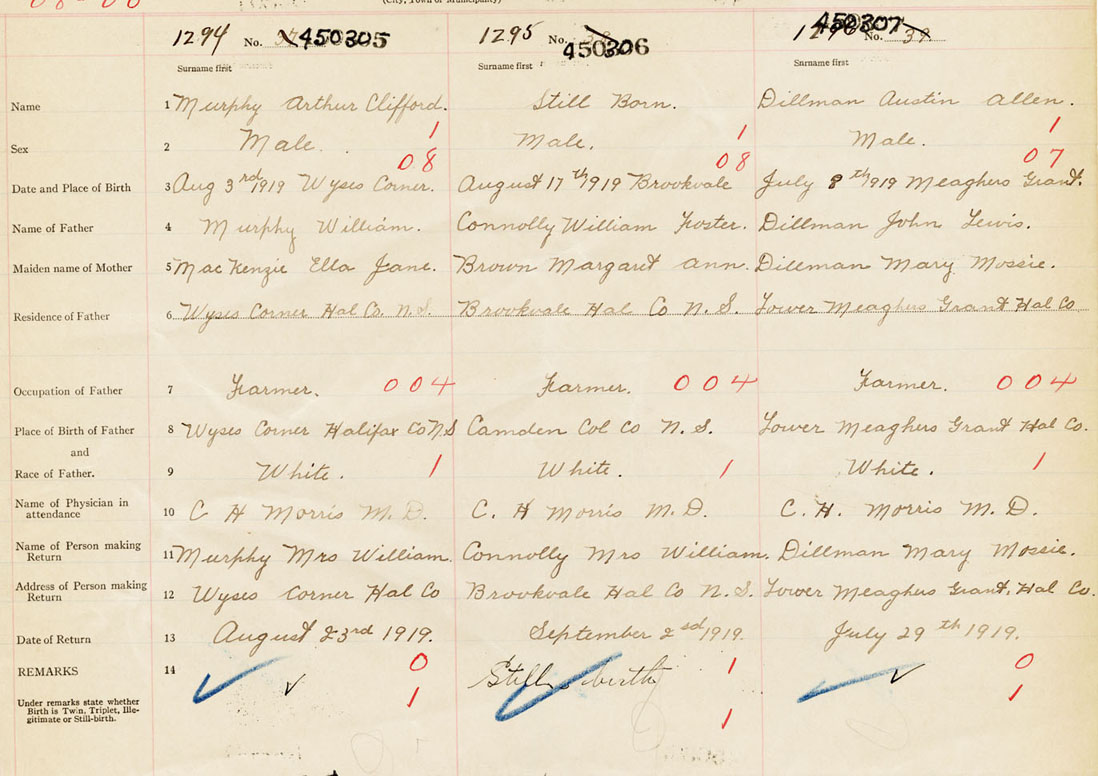 (City, Town or Municipality)
1294 No. 450305
1295 No. 450306
No. 39 450307
Surname first
Surname first
Surname first
Name 1 Murphy Arthur Clifford. Still Born. Dillman Austin Allen.
1 1 1
Sex 2 Male. Male. Male.
08 08 07
Date and Place of Birth 3 Aug 3rd 1919 Wyses Corner. August 17th 1919 Brookvale July 8th 1919 Meaghers Grant.
Name of Father 4 Murphy William. Connolly William Foster. Dillman John Lewis.
Maiden name of Mother 5 MacKenzie Ella Jane. Brown Margaret Ann. Dillman Mary Mossie.
Residence of Father 6 Wyses Corner Hal Co. N.S. Brookvale Hal Co N.S. Lower Meaghers Grant Hal Co
Occupation of Father 7 Farmer. 004 Farmer. 004 Farmer. 004
Place of Birth of Father 8 Wyses Corner Halifax Co N.S Camden Col Co N.S. Lower Meaghers Grant Hal Co.
and
Race of Father. 9 White. 1 White. 1 White. 1
Name of Physician in
attendance 10 C H Morris M.D. C. H Morris M.D. C. H. Morris M.D.
Name of Person making
Return 11 Murphy Mrs William. Connolly Mrs William. Dillman Mary Mossie.
Address of Person making
Return 12 Wyses Corner Hal Co Brookvale Hal Co N.S. Lower Meaghers Grant. Hal Co.
Date of Return 13 August 23rd 1919. September 2sd 1919. July 29th 1919.
REMARKS 14 0 Still birth 1 0
Under remarks state whether
Birth is Twin, Triplet, Ille-
gitimate or Still-birth.
1 1 1